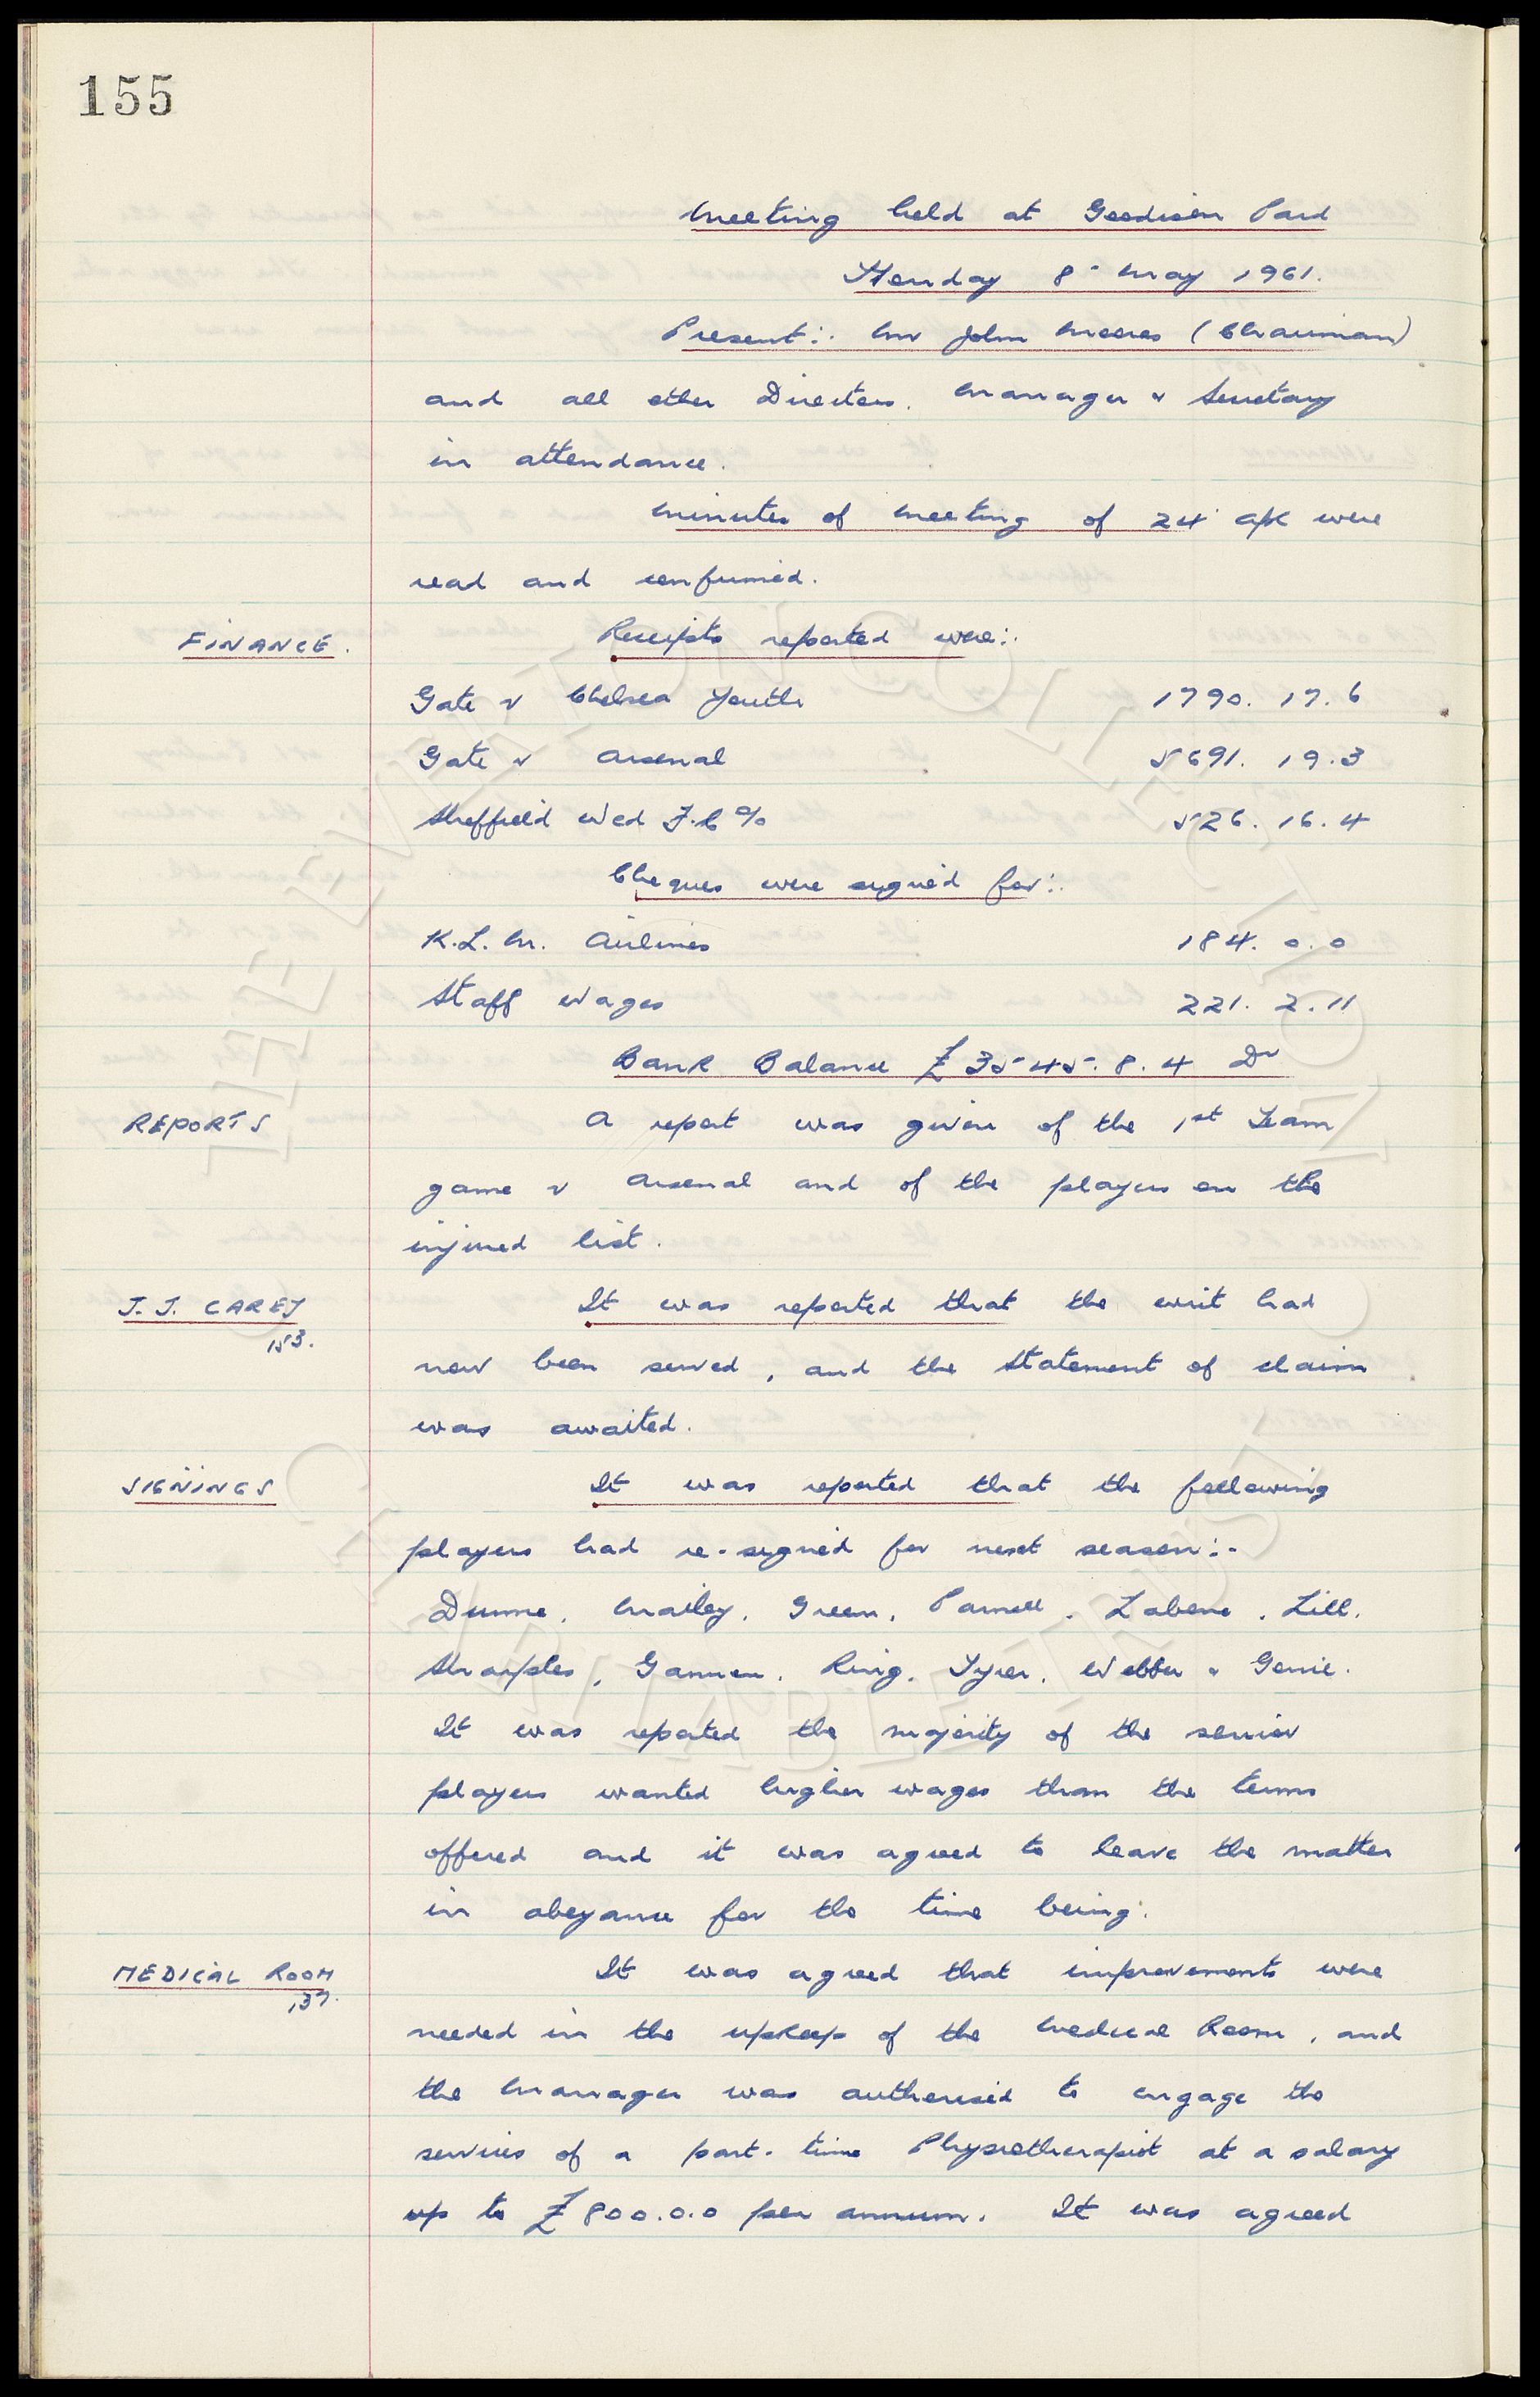 155
Meeting held at Goodison Park
Monday 8th May 1961.
Present:- Mr John Moores (Chairman)
and all other Directors. Manager & Secretary
in attendance.
Minutes of meeting of 24' ult were
read and confirmed.
FINANCE.
Receipts reported were:-
Gate v Chelsea Youth 1790. 17. 6
Gate v Arsenal 5691. 19. 3
Sheffield Wed F.C % 526. 16. 4
Cheques were signed for:-
K.L.M. Airlines 184. 0. 0
Staff Wages 221. 2. 11
Bank Balance £3545. 8. 4 Dr
REPORTS
A report was given of the 1st Team
game v Arsenal and of the players on the
injured list.
J. J. CAREY
153.
It was reported that the writ had
now been served, and the Statement of claim
was awaited.
SIGNINGS
It was reported that the following
players had re-signed for next season:-
Dunne, Mailey, Green, Parnell, Labone, Lill,
Sharples, Gannon, Ring, Tyrer, Webber & Gorrie.
It was reported the majority of the senior
players wanted higher wages than the terms
offered and it was agreed to leave the matter
in abeyance for the time being.
MEDICAL ROOM
137.
It was agreed that improvements were
needed in the upkeep of the Medical Room, and
the Manager was authorised to engage the
services of a part-time Physiotherapist at a salary
up to £800.0.0 per annum. It was agreed